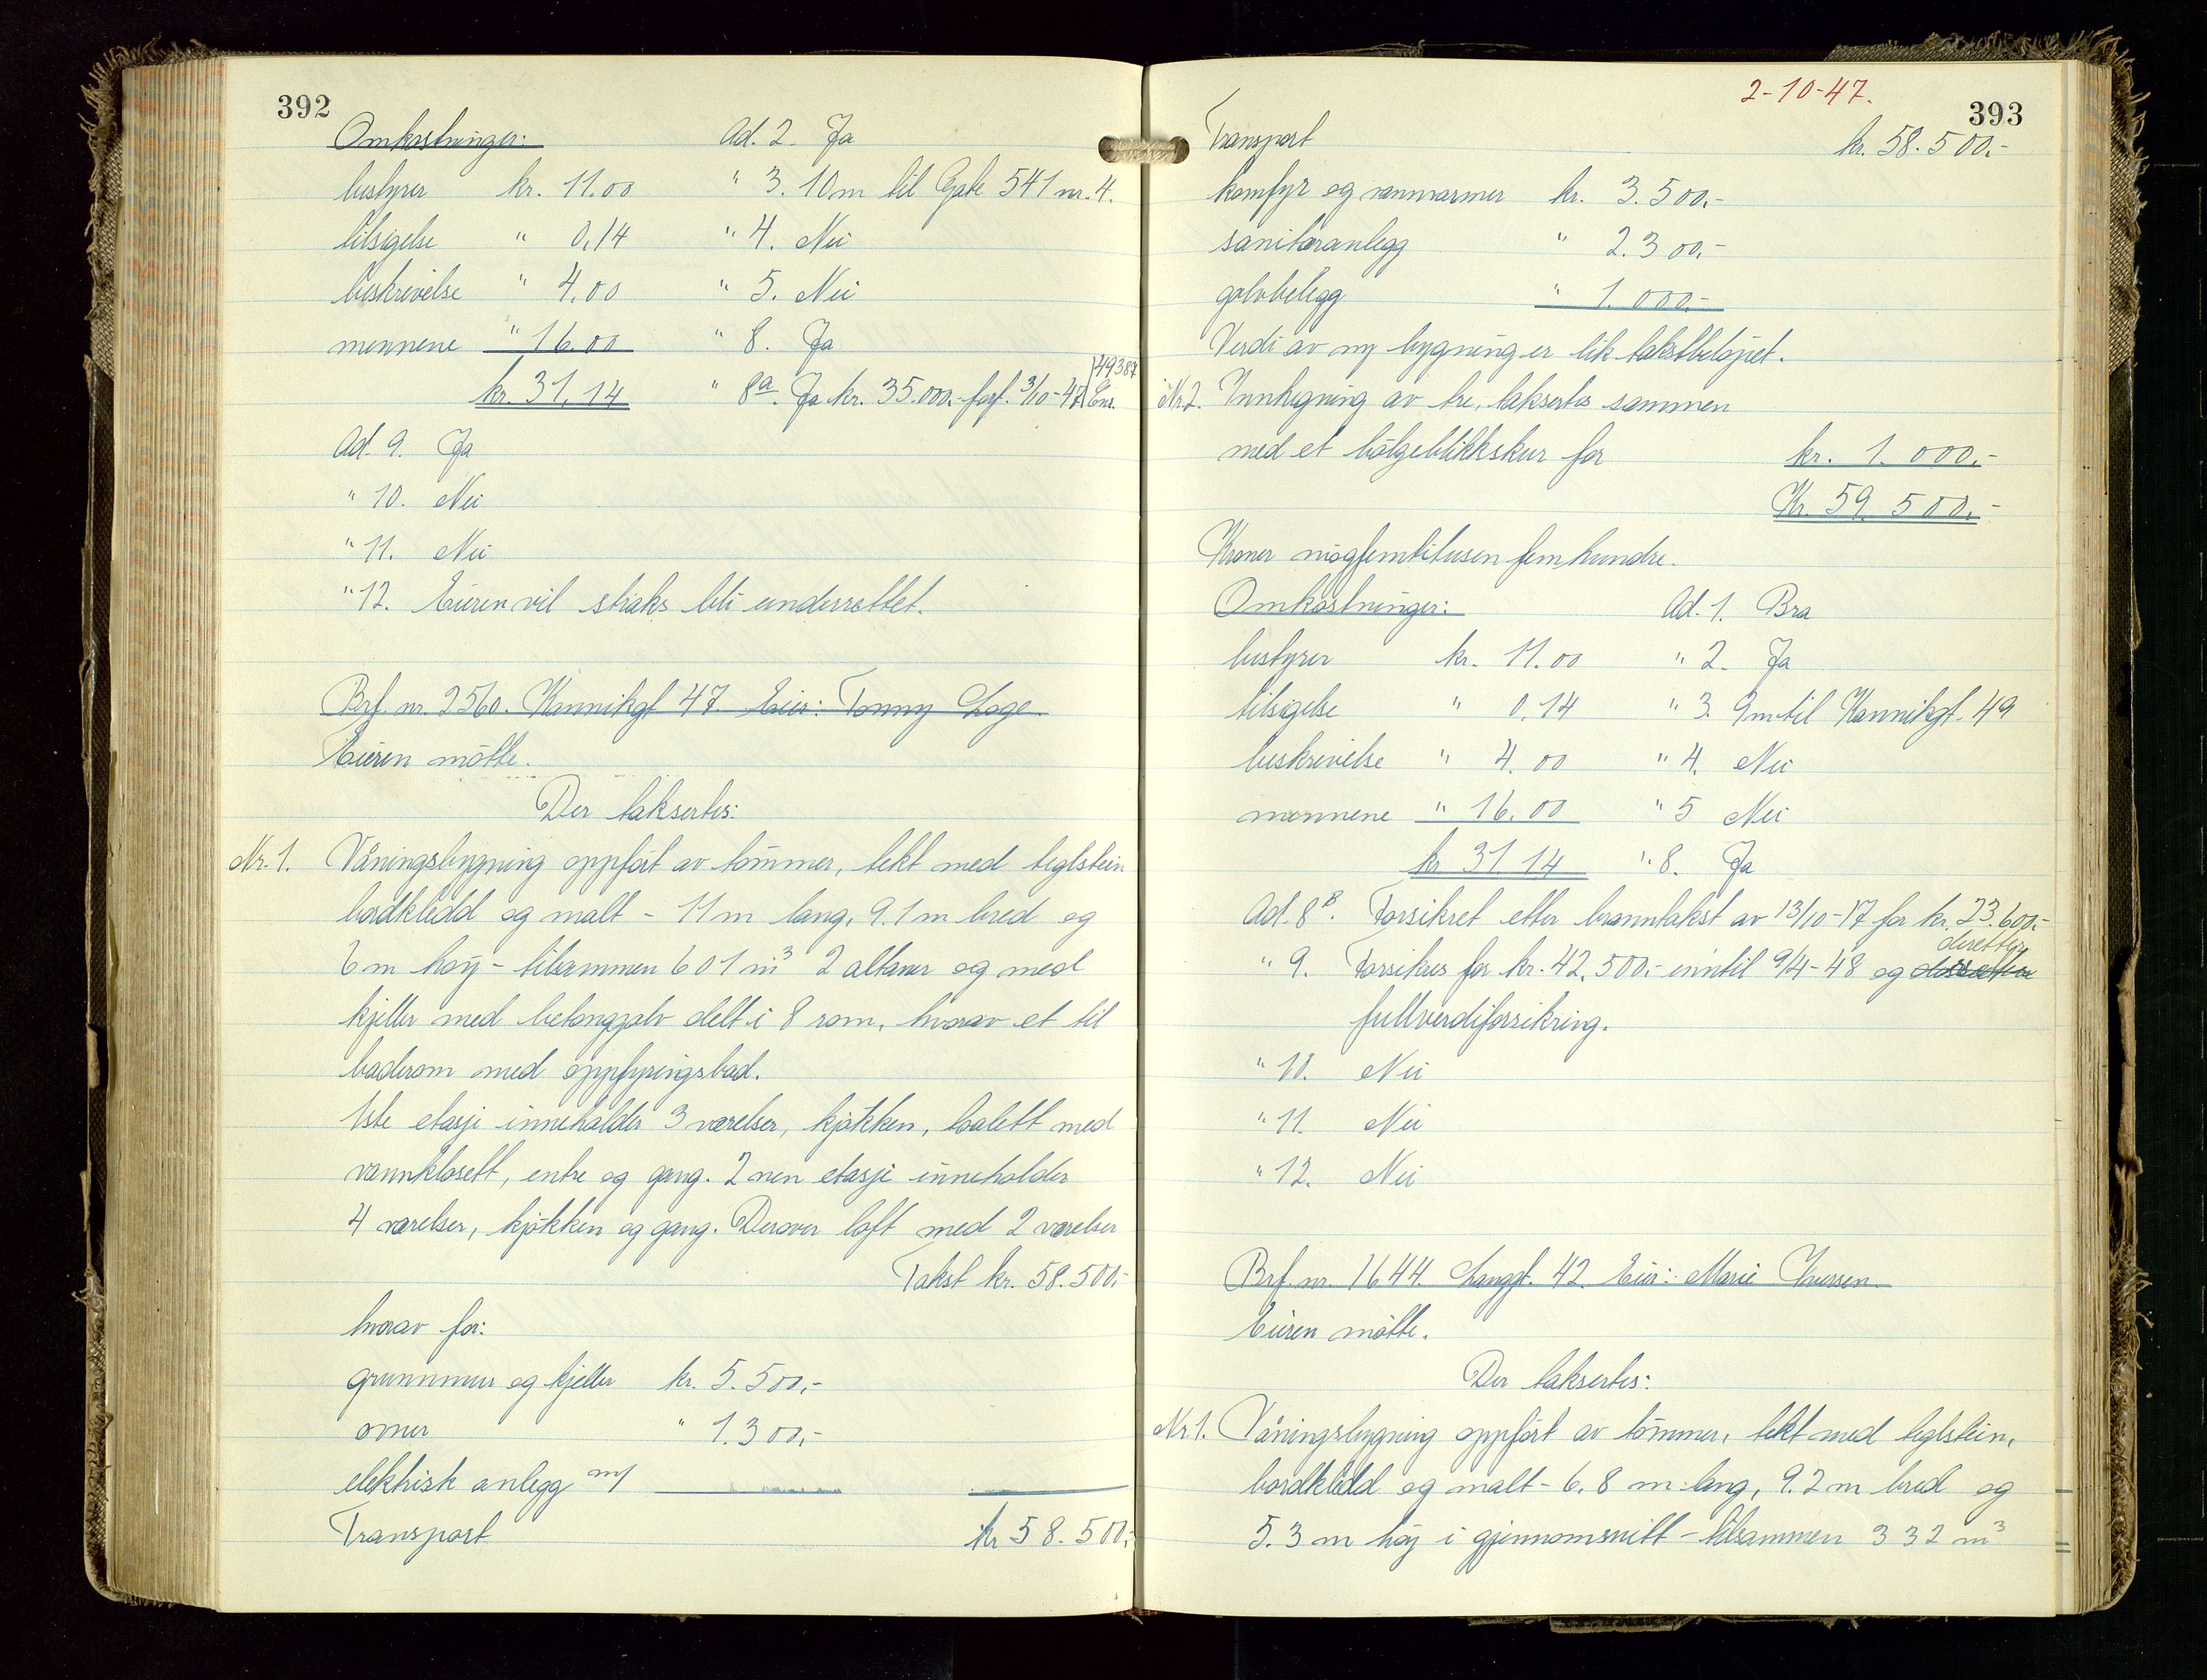 392
Omkostninger: Ad. 2. Ja
bestyrer kr. 11.00 " 3. 10 m til Gate 541 nr. 4.
tilsigelse " 0,14 " 4. Nei
beskrivelse " 4,00 " 5. Nei
mennene " 16.00 " 8. Ja
kr. 31,14 " 8a. Ja kr. 35.000,- forf. 3/10-47
Ad. 9. Ja
" 10. Nei
" 11. Nei
" 12. Eieren vil straks bli underrettet.
Brf. nr. 2560. Kannikgt 47. Eier: Tonny Loge
Eieren møtte.
Der taksertes:
Nr. 1. Våningsbygning oppført av tømmer, tekt med teglstein
bordkledd og malt - 11 m lang, 9.1 m bred og
6 m høy - tilsammen 601 m3 2 altaner og med
kjeller med betonggolv delt i 8 rom, hvorav et til
baderom med oppfyringsbad.
1ste etasje inneholder 3 værelser, kjøkken, toalett med
vannklosett, entre og gang. 2nen etasje inneholder
4 værelser, kjøkken og gang. Derover loft med 2 værelser
Takst kr. 58.500,-
hvorav for:
grunnmur og kjeller kr. 5.500,-
ovner " 1.300,-
elektrisk anlegg m/
Transport kr 58.500,-
2-10-47.
393
Transport kr. 58.500,-
komfyr og vannvarmer kr. 3.500,-
sanitæranlegg " 2.300,-
golvbelegg " 1.000,-
Verdi av ny bygning er lik takstbeløpet.
Nr 2. Innhegning av tre, taksertes sammen
med et bølgeblikkskur for kr. 1.000,-
Kr. 59.500,-
Kroner niogfemtitusen femhundre.
Omkostninger: Ad. 1. Bra
bestyrer kr. 11.00 " 2. Ja
tilsigelse " 0,14 " 3. 9 m til Kannikgt. 49
beskrivelse " 4.00 " 4. Nei
mennene " 16.00 " 5 Nei
kr 31.14 " 8. Ja
Ad. 8B. Forsikret etter branntakst av 13/10-17 for kr. 23.600,-
deretter
" 9. Forsikres for kr. 42.500,- inntil 9/4-48 og
fullverdiforsikring.
" 10. Nei
" 11. Nei
" 12. Nei
Brf. nr. 1644. Langgt. 42. Eier: Marie Iversen
Eieren møtte.
Der taksertes:
Nr 1. Våningsbygning oppført av tømmer, tekt med teglstein,
bordkledd og malt - 6.8 m lang, 9.2 m bred og
5.3 m høy i gjennomsnitt - tilsammen 332 m3